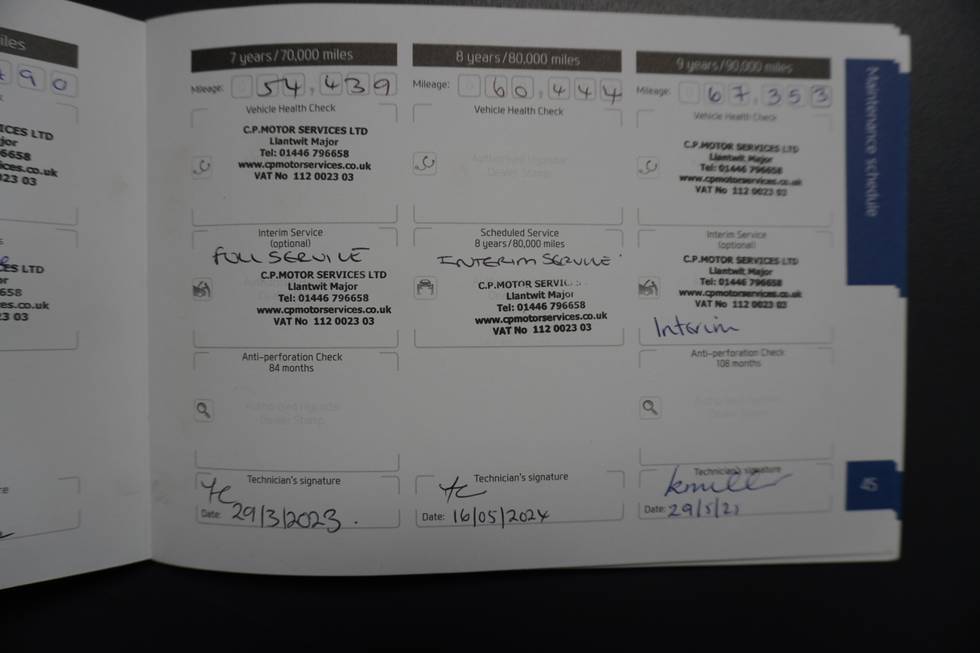 iles
90
CES LTD
jor
6658
ces.co.uk
023 03
CES LTD
r
658
es.co.uk
3 03
re
7 years/70,000 miles
Mileage: 54,439
Vehicle Health Check
C.P.MOTOR SERVICES LTD
Llantwit Major
Tel: 01446 796658
www.cpmotorservices.co.uk
VAT No 112 0023 03
Interim Service
(optional)
FULL SERVICE
C.P.MOTOR SERVICES LTD
Llantwit Major
Tel: 01446 796658
www.cpmotorservices.co.uk
VAT No 112 0023 03
Anti-perforation Check
84 months
Authorised Hyundai
Dealer Stamp
Technician's signature
Date: 29/3/2023.
8 years/80,000 miles
Mileage: 60,444
Vehicle Health Check
Authorised Hyundai
Dealer Stamp
Scheduled Service
8 years/80,000 miles
INTERIM SERVICE
C.P.MOTOR SERVIC
Llantwit Major
Tel: 01446 796658
www.cpmotorservices.co.uk
VAT No 112 0023 03
Technician's signature
Date: 16/05/2024
9 years/90,000 miles
Mileage: 67,353
Vehicle Health Check
C.P.MOTOR SERVICES LTD
Llantwit Major
Tel: 01446 796658
www.cpmotorservices.co.uk
VAT No 112 0023 03
Interim Service
(optional)
C.P.MOTOR SERVICES LTD
Llantwit Major
Tel: 01446 796658
www.cpmotorservices.co.uk
VAT No 112 0023 03
Interim
Anti-perforation Check
108 months
Authorised Hyundai
Dealer Stamp
Technician's signature
Date: 29/5/2
Maintenance schedule
45